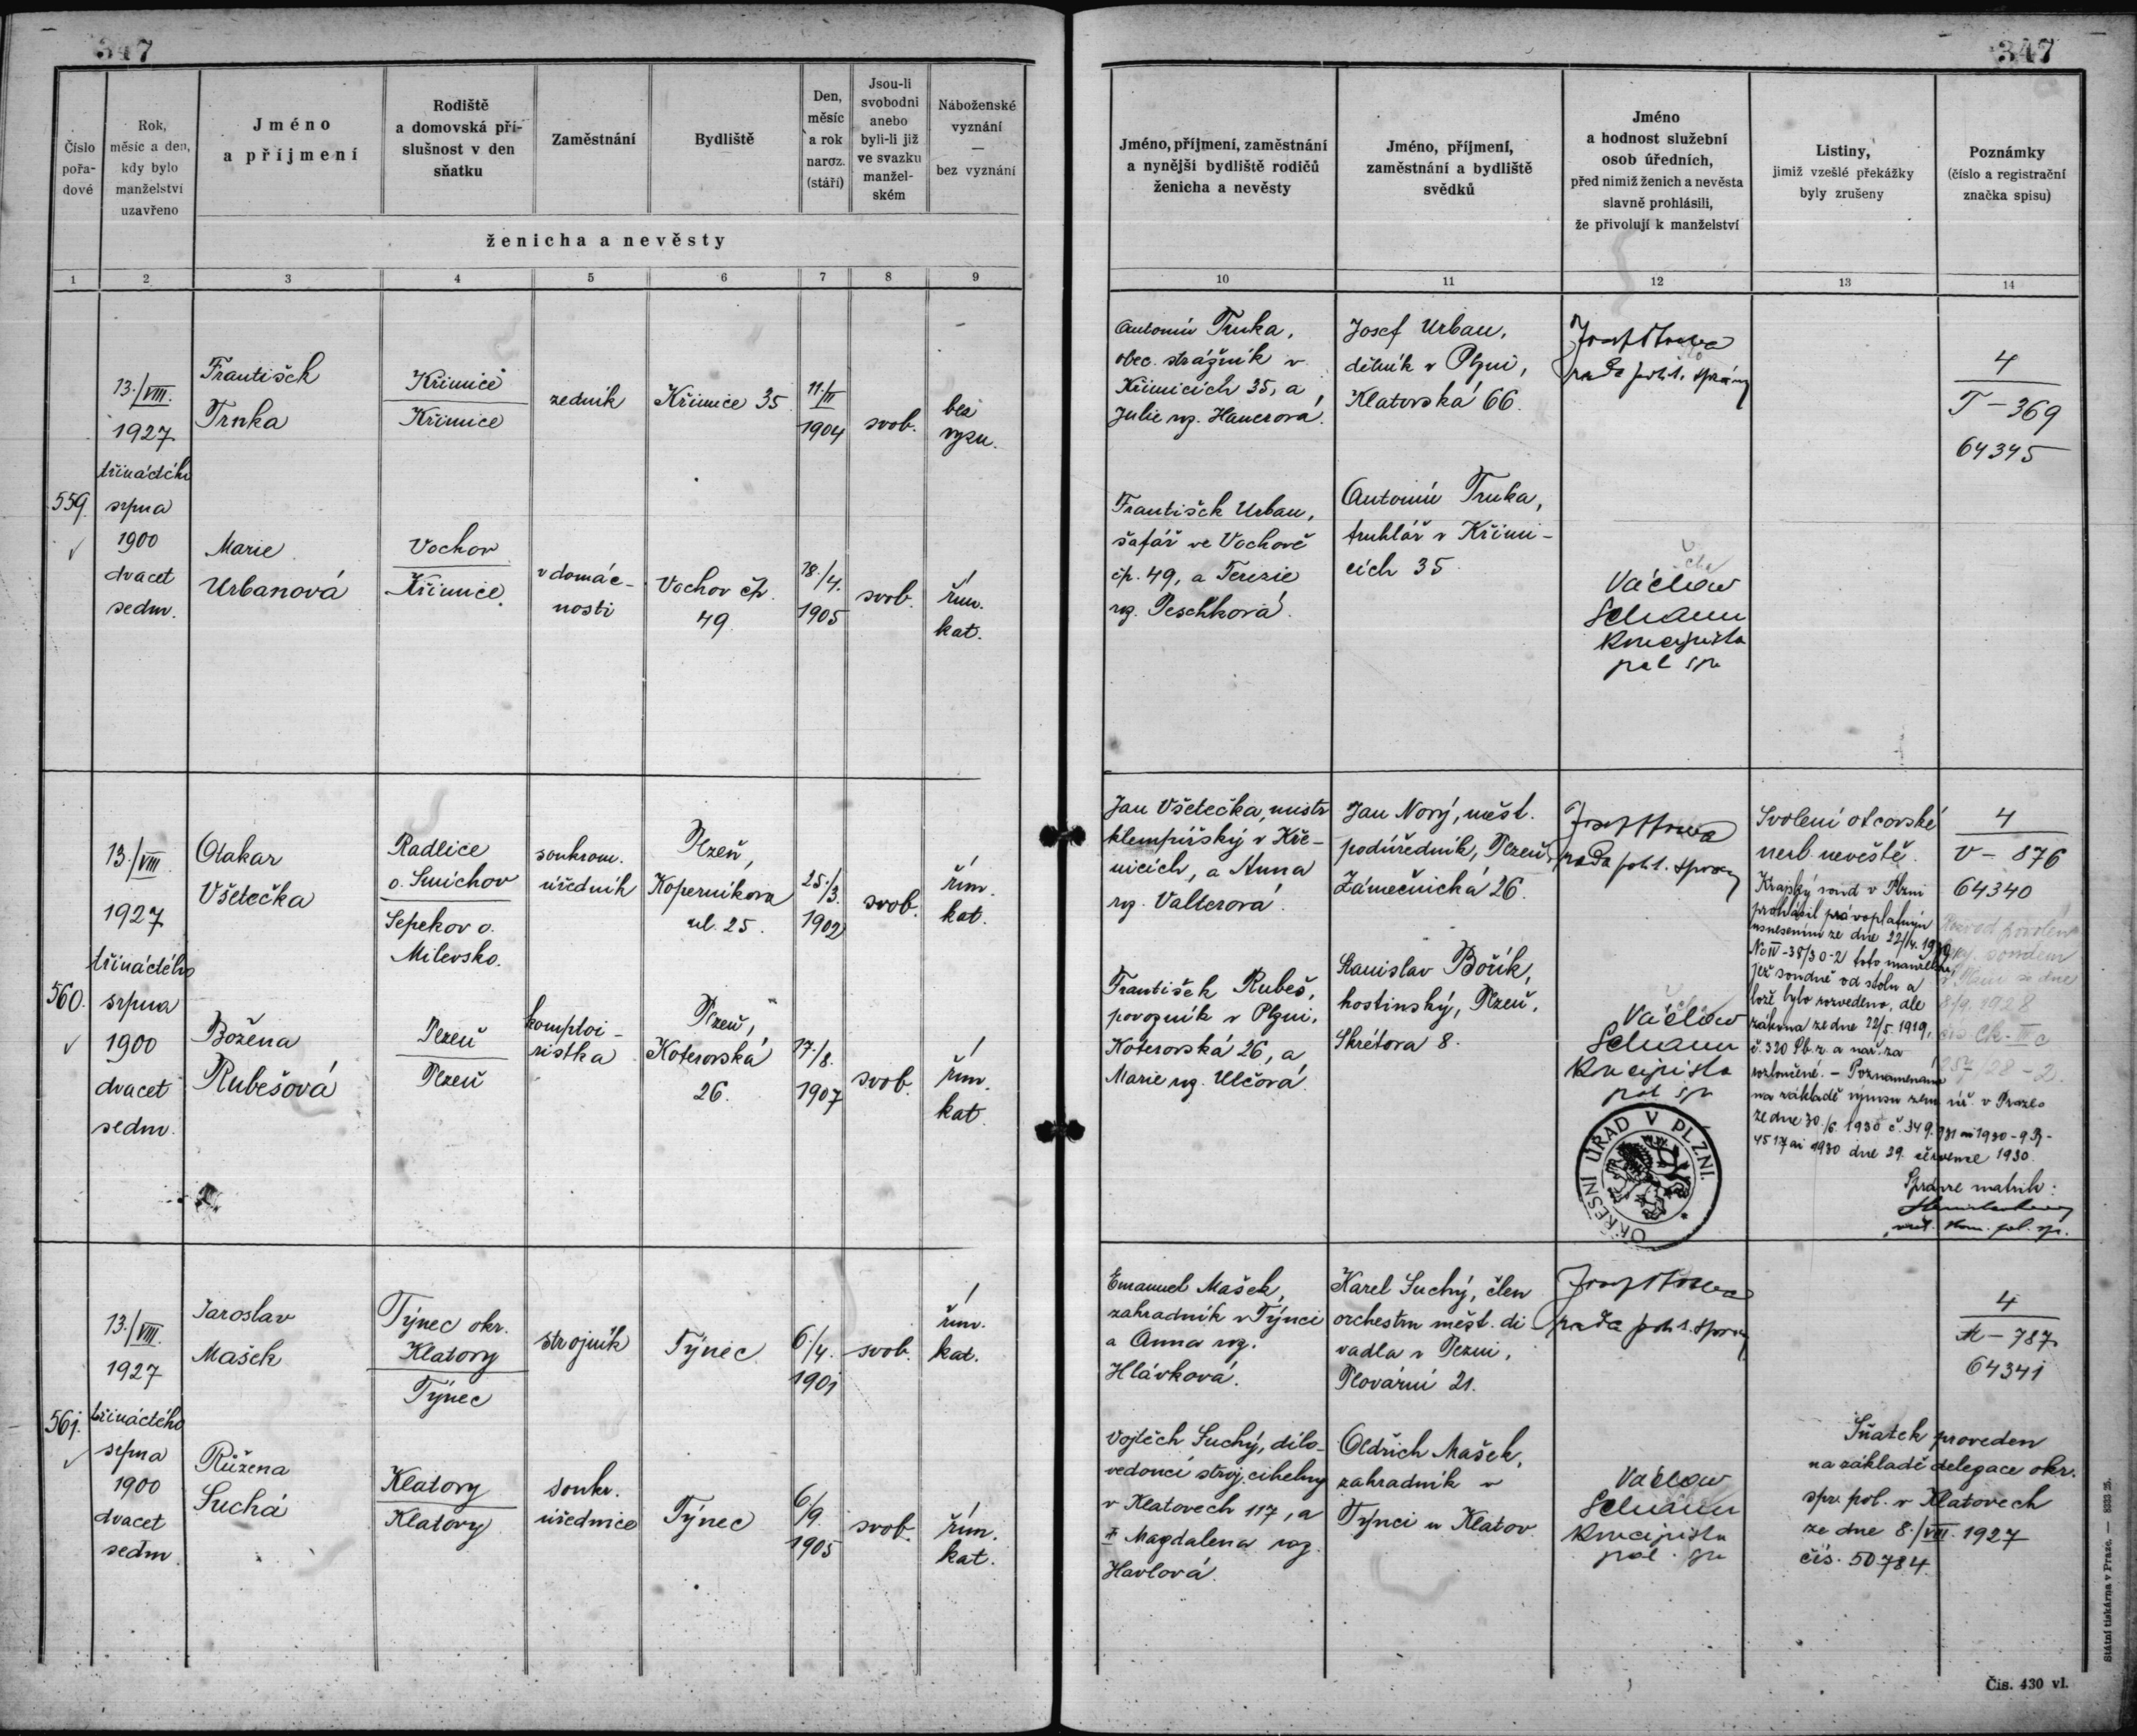 347
347
Číslo pořa- dové
Rok, měsíc a den, kdy bylo manželství uzavřeno
Jméno a příjmení
Rodiště a domovská pří- slušnost v den sňatku
Zaměstnání
Bydliště
Den, měsíc a rok naroz. (stáří)
Jsou-li svobodni anebo byli-li již ve svazku manžel- ském
Náboženské vyznání — bez vyznání
ženicha a nevěsty
Jméno, příjmení, zaměstnání a nynější bydliště rodičů ženicha a nevěsty
Jméno, příjmení, zaměstnání a bydliště svědků
Jméno a hodnost služební osob úředních, před nimiž ženich a nevěsta slavně prohlásili, že přivolují k manželství
Listiny, jimiž vzešlé překážky byly zrušeny
Poznámky (číslo a registrační značka spisu)
1 2 3 4 5 6 7 8 9 10 11 12 13 14
559.
13./VIII.
1927
třináctého
srpna
1900
dvacet
sedm.
František
Trnka
Křimice
Křimice
zedník
Křimice 35
11./III
1904
svob.
bez
vyzn.
Marie
Urbanová
Vochov
Křimice
v domác-
nosti
Vochov čp.
49
18./4.
1905
svob.
řím.
kat.
Antonín Trnka,
obec. strážník v
Křimicích 35, a
Julie roz. Hanerová.
František Urban,
šafář ve Vochově
čp. 49, a Terezie
roz. Peschková.
Josef Urban,
dělník v Plzni,
Klatovská 66.
Antonín Trnka,
truhlář v Křimi-
cích 35
rada polit. správy
Václav
Schann
koncipista
pol. spr.
4
T - 369
64345
560.
13./VIII
1927
třináctého
srpna
1900
dvacet
sedm.
Otakar
Všetečka
Radlice
o. Smíchov
Sepekov o.
Milevsko.
soukrom.
úředník
Plzeň,
Koperníkova
ul. 25.
25./3.
1902
svob.
řím.
kat.
Božena
Rubešová
Plzeň
Plzeň
komptoi-
ristka
Plzeň,
Koterovská
26.
17./8.
1907
svob.
řím.
kat.
Jan Všetečka, mistr
klempířský v Kře-
nicích, a Anna
roz. Valterová.
František Rubeš,
povozník v Plzni,
Koterovská 26, a
Marie roz. Ulčová.
Jan Nový, měst.
podúředník, Plzeň,
Zámečnická 26.
Stanislav Bořík,
hostinský, Plzeň,
Skrétova 8.
rada polit. správy
Václav
Schann
koncipista
pol. spr.
OKRESNÍ ÚŘAD V PLZNI.
Svolení otcovské
neub. nevěstě.
Krajský soud v Plzni
prohlásil právoplatným
usnesením ze dne 22/4. 1930
No IV-38/30-2 toto manželství,
jež soudně od stolu a
lože bylo rozvedeno, dle
zákona ze dne 22/5. 1919,
č. 320 Sb. z. a nař. za
rozloučené. - Poznamenáno
na základě výnosu zem. úř. v Praze
ze dne 30./6. 1930 č. 349.931 ai 1930-
4517 ai 1930 dne 29. července 1930.
Správce matrik:
4
V - 876
64340
Rozvod povolen
kraj. soudem
v Plzni ze dne
8/9. 1928
čís. Ck. II c
1257/28-2.
561.
13./VIII.
1927
třináctého
srpna
1900
dvacet
sedm
Jaroslav
Mašek
Týnec okr.
Klatovy
Týnec
strojník
Týnec
6./4.
1901
svob.
řím.
kat.
Růžena
Suchá
Klatovy
Klatovy
soukr.
úřednice
Týnec
6/9.
1905
svob.
řím.
kat.
Emanuel Mašek,
zahradník v Týnci
a Anna roz.
Hlávková.
Vojtěch Suchý, dílo-
vedoucí stroj. cihelny
v Klatovech 117, a
Magdalena roz.
Havlová.
Karel Suchý, člen
orchestru měst. di-
vadla v Plzni,
Plovární 21.
Oldřich Mašek,
zahradník v
Týnci u Klatov
rada polit. správy
Václav
Schann
koncipista
pol. spr.
4
M - 787
64341
Sňatek proveden
na základě delegace okr.
spr. pol. v Klatovech
ze dne 8./VIII. 1927
čís. 50.784.
Státní tiskárna v Praze. — 8333 25.
Čís. 430 vl.